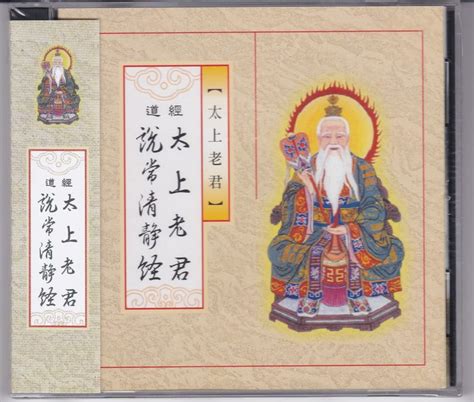 道經
太上老君
說常清靜經
【太上老君】
道經
太上老君
說常清靜經